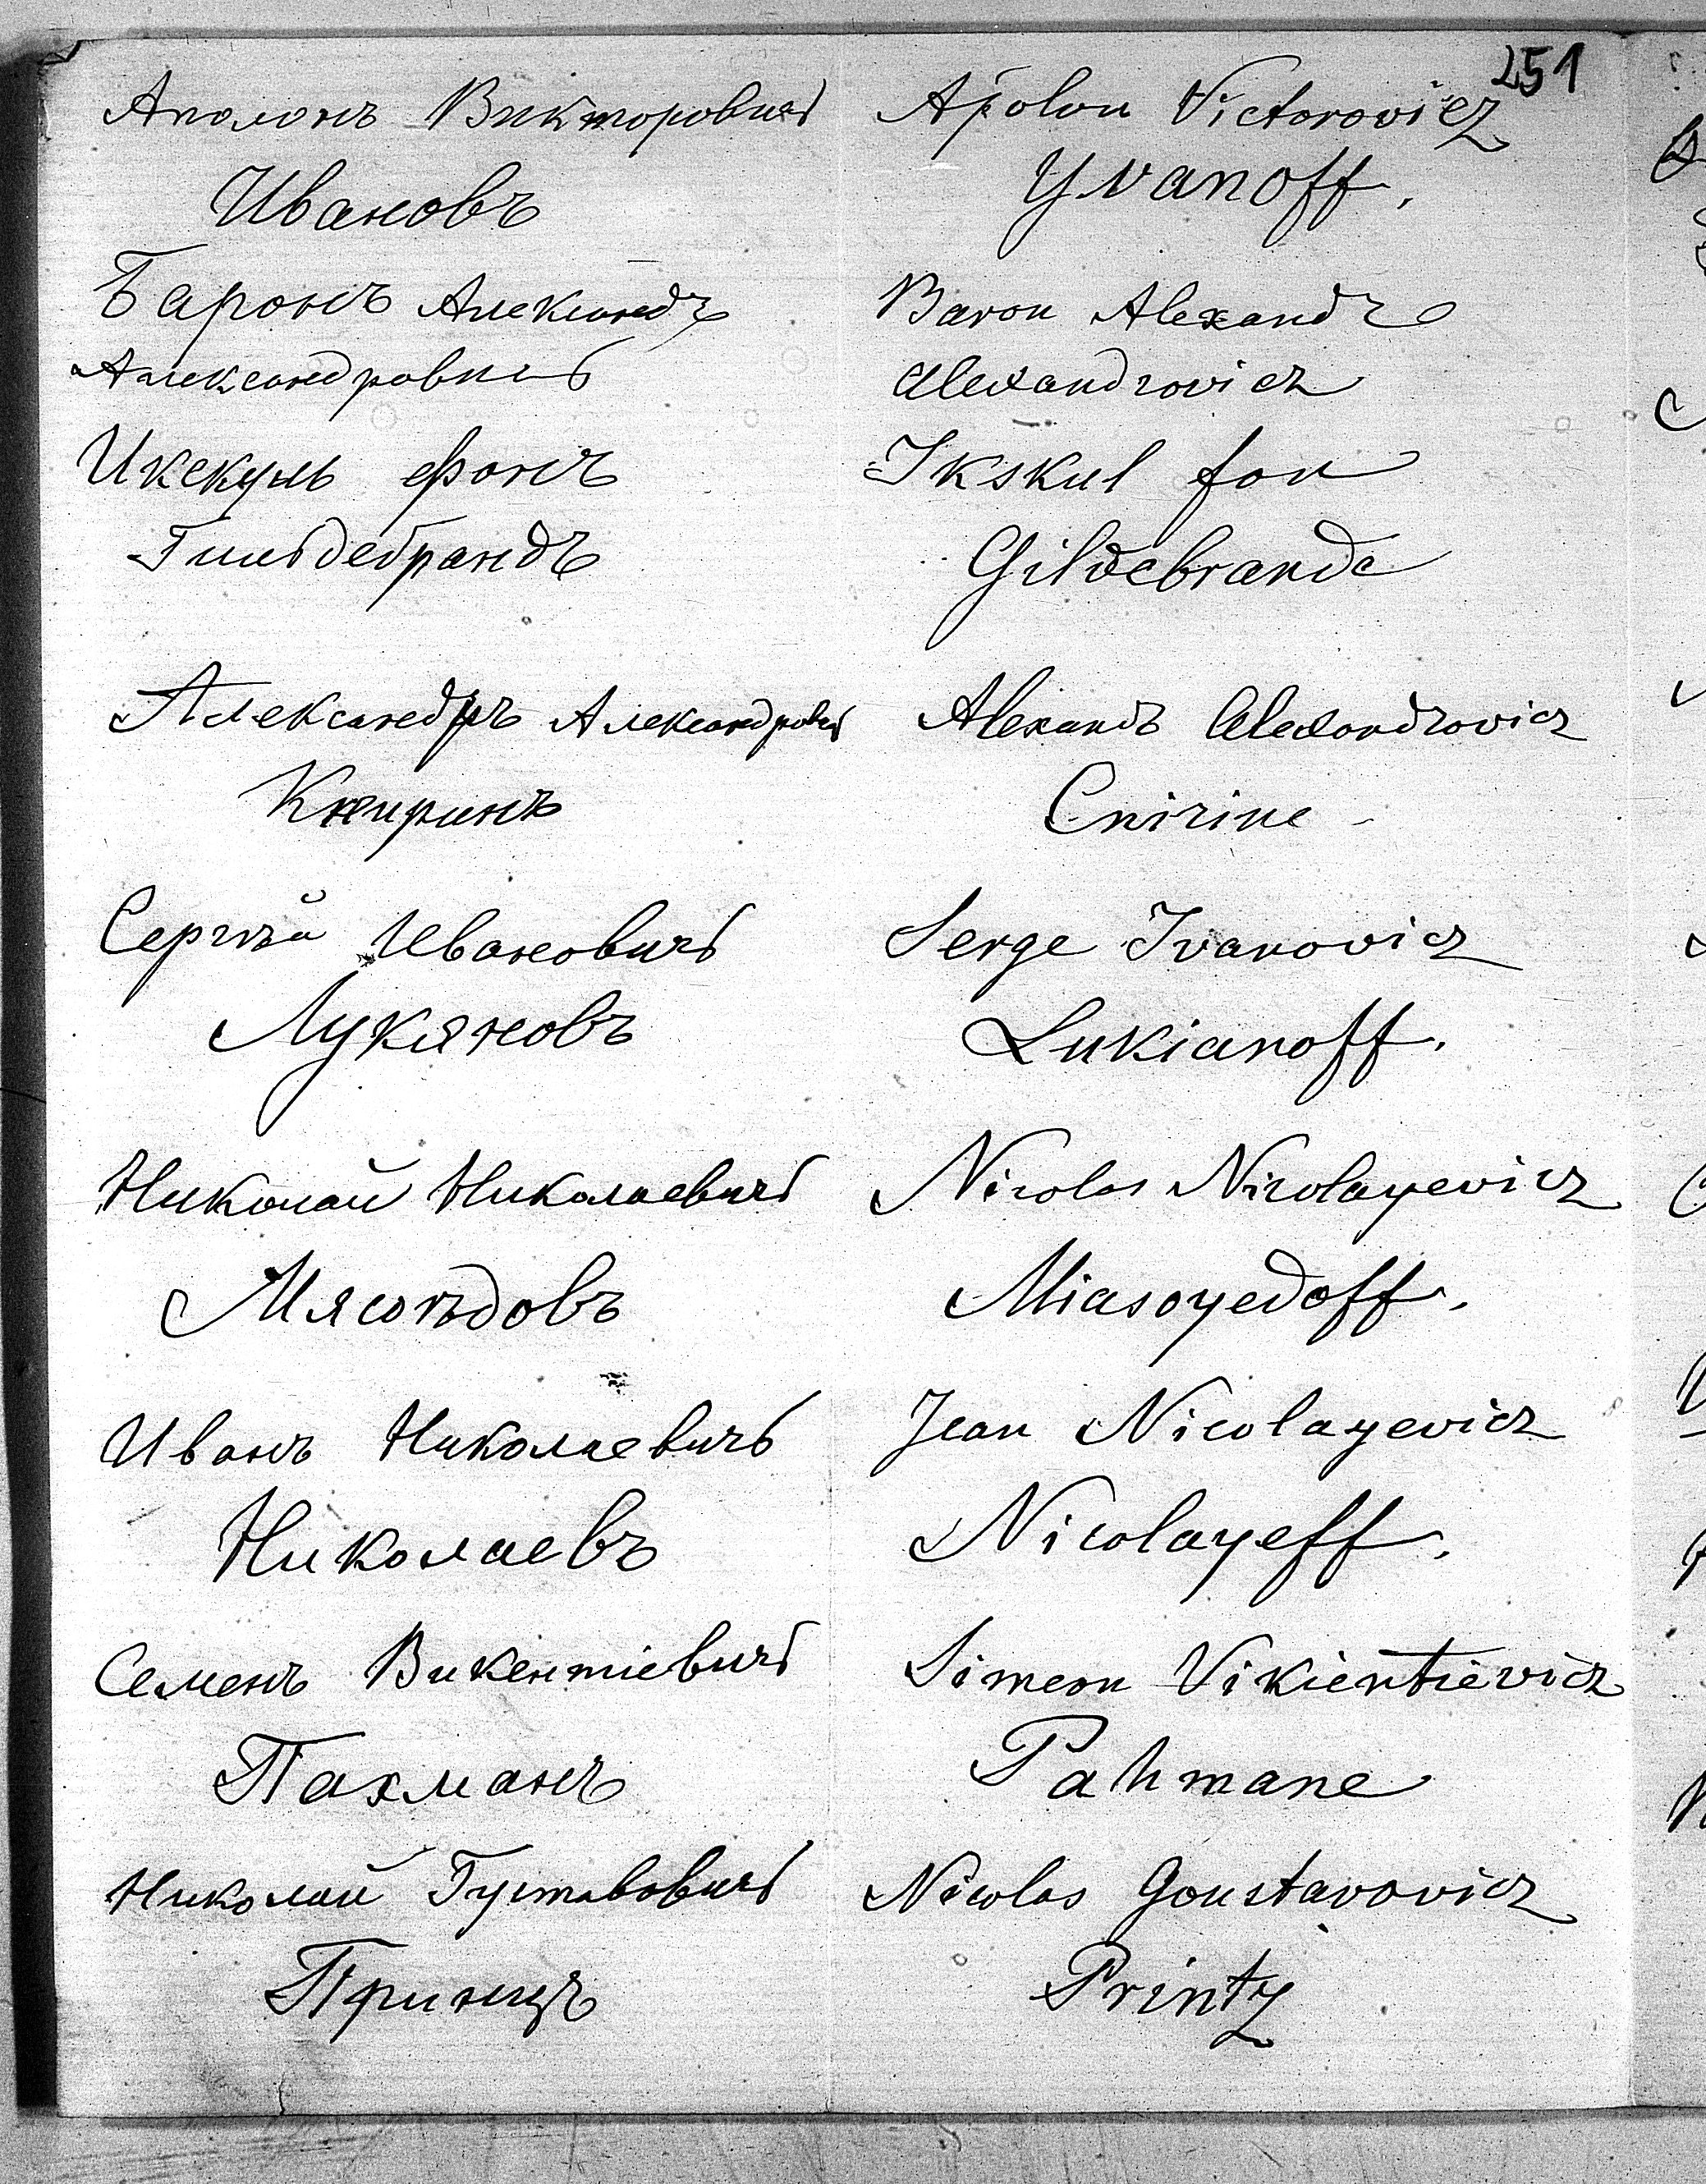 251
Аполонъ Викторовичъ Apolon Victorovicz
Ивановъ Yvanoff.
Баронъ Александръ Baron Alexandre
Александровичъ Alexandrovicz
Икскуль фонъ Ikskul fon
Гильдебрандъ Gildebrande
Александръ Александровичъ Alexandr Alexandrovicz
Книринъ Cnirine
Сергѣй Ивановичъ Serge Ivanovicz
Лукяновъ Lukianoff.
Николай Николаевичъ Nicolas Nicolayevicz
Мясоѣдовъ Miasoyedoff.
Иванъ Николаевичъ Jean Nicolayevicz
Николаевъ Nicolayeff.
Семенъ Викентіевичъ Simeon Vikientievicz
Пахманъ Pahmane
Николай Густавовичъ Nicolas Goustavovicz
Принцъ Printz